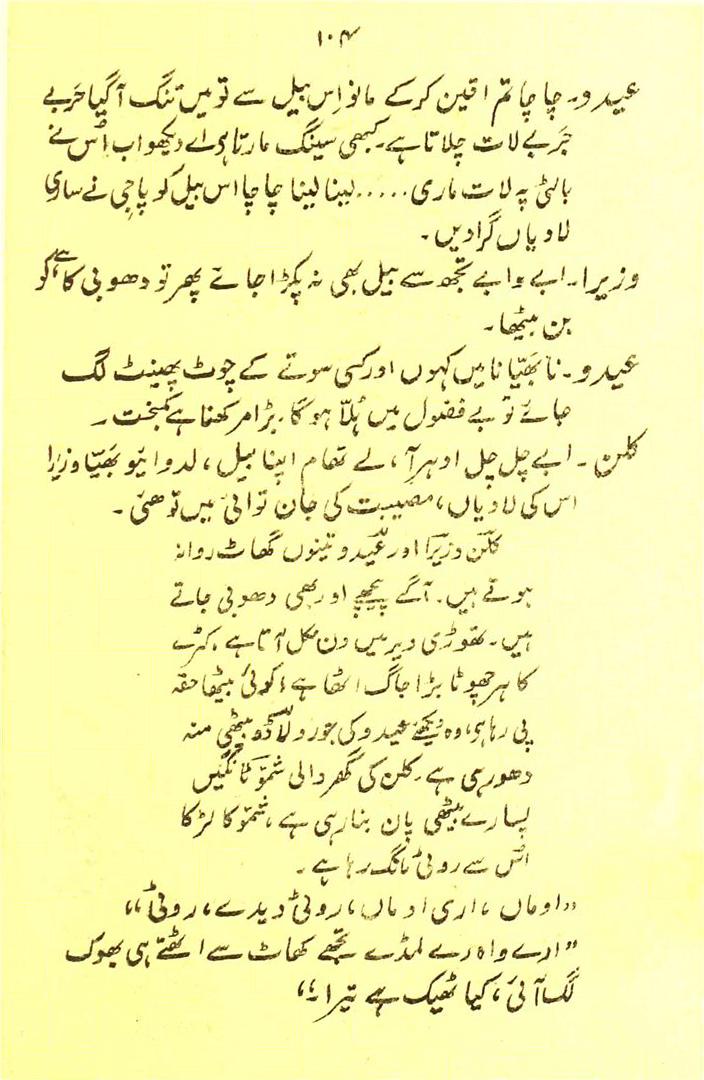 ۱۰۴
عیدو۔ چاچا تم اقین کرکے مانو اِس بیل سے تو میں تنگ آگیا جَربے
جَربے لات چلاتا ہے۔ کبھی سینگ مارتا ہی اے دیکھو اب اُس نے
بالٹی پہ لات ماری ..... لینا لینا چاچا اس بیل کو پاجی نے ساری
لادیاں گرا دیں۔
وزیرا۔ ابے وابے تجھ سے بیل بھی نہ پکڑا جائے پھر تو دھوبی کاہے کو
بن بیٹھا۔
عیدو۔ نا بھَیّا نا میں کہوں اور کسی سوتے کے چوٹ پھینٹ لگ
جائے تو بے فضول میں ہُلّا ہوگا۔ بڑا مرکھنا ہے کمبخت۔
کلن۔ ابے چل چل ادہر آ، لے تھام اپنا بیل، لدوائیو بھَیّا وزیرا
اس کی لادیاں، مصیبت کی جان توائی میں توھی۔
کلّن وزیرا اور عیدو تینوں گھاٹ روانہ
ہوتے ہیں۔ آگے پیچھے اور بھی دھوبی جاتے
ہیں۔ تھوڑی دیر میں دن نکل آتا ہے۔ کٹرے
کا ہر چھوٹا بڑا جاگ اٹھا ہے، کوئی بیٹھا حقہ
پی رہا ہی، وہ دیکھئے عیدو کی جورو لاڈو بیٹھی منہ
دھو رہی ہے۔ کلن کی گھر والی شمّو ٹانگیں
پسارے بیٹھی پان بنا رہی ہے، شمّو کا لڑکا
اس سے روٹی مانگ رہا ہے۔
”اوماں، اری اوماں، روٹی دیدے، روٹی“
”ارے واہ رے لمڈے تجھے کھاٹ سے اٹھتے ہی بھوک
لگ آئی، کیا ٹھیک ہے تیرا۔“